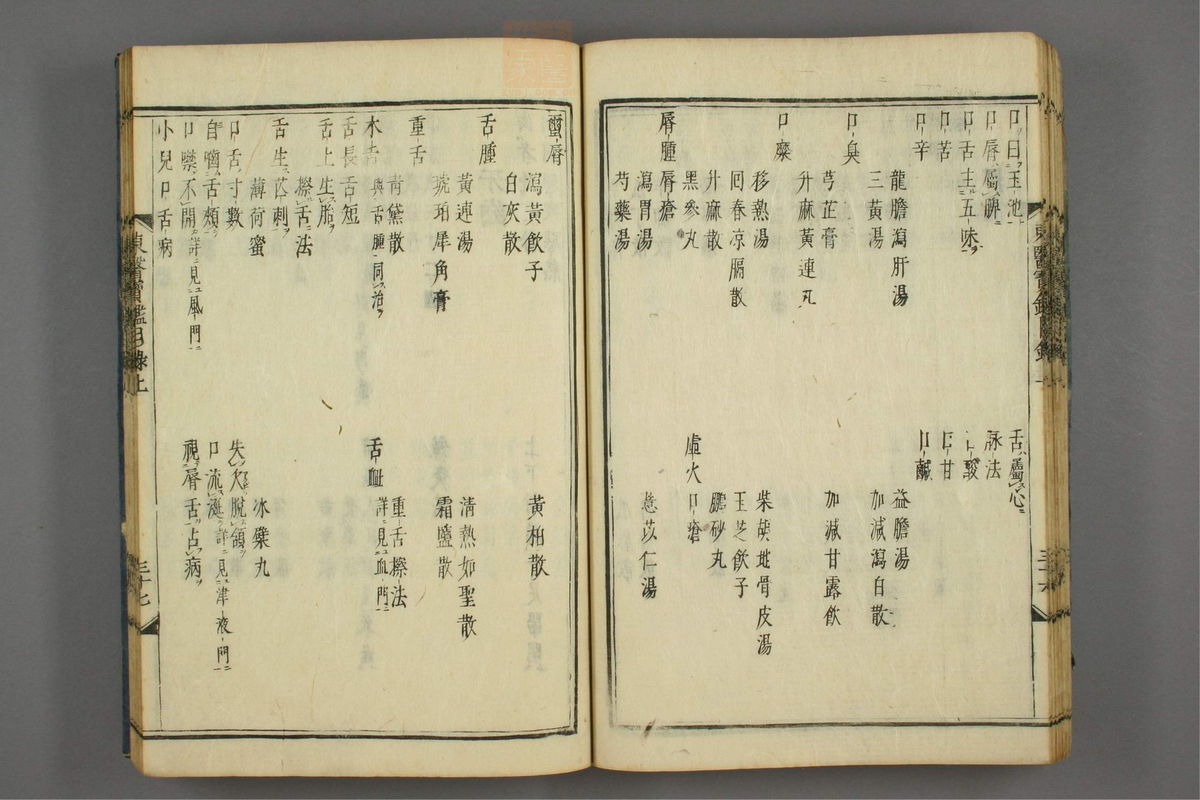 口曰玉池 舌屬心
口唇屬脾 診法
口舌主五味 口酸
口苦 口甘
口辛 口鹹
龍膽瀉肝湯 益膽湯
三黃湯 加減瀉白散
口臭
芎芷膏 加減甘露飲
升麻黃連丸
口糜
移熱湯 柴胡地骨皮湯
回春凉膈散 玉芝飲子
升麻散 鵬砂丸
黑參丸 虛火口瘡
唇腫唇瘡
瀉胃湯 薏苡仁湯
芍藥湯
繭唇
瀉黃飲子 黃柏散
白灰散
舌腫
黃連湯 清熱如聖散
琥珀犀角膏 霜鹽散
重舌
青黛散 重舌擦法
木舌與舌腫同治 舌衄詳見血門
舌長舌短
舌上生胎
擦舌法
舌生芒刺
薄荷蜜 冰蘗丸
口舌寸數 失欠脫頷
自囓舌頰 口流涎詳見津液門
口噤不開詳見風門 視唇舌占病
小兒口舌病
東醫寶鑑目錄上 三十七